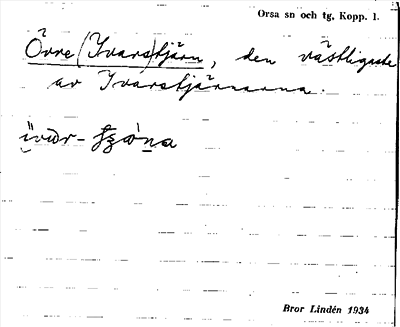 Orsa sn och tg, Kopp. 1.
Övre (Ivars)tjärn, den västligaste
av Ivarstjärnarna.
Bror Lindén 1934